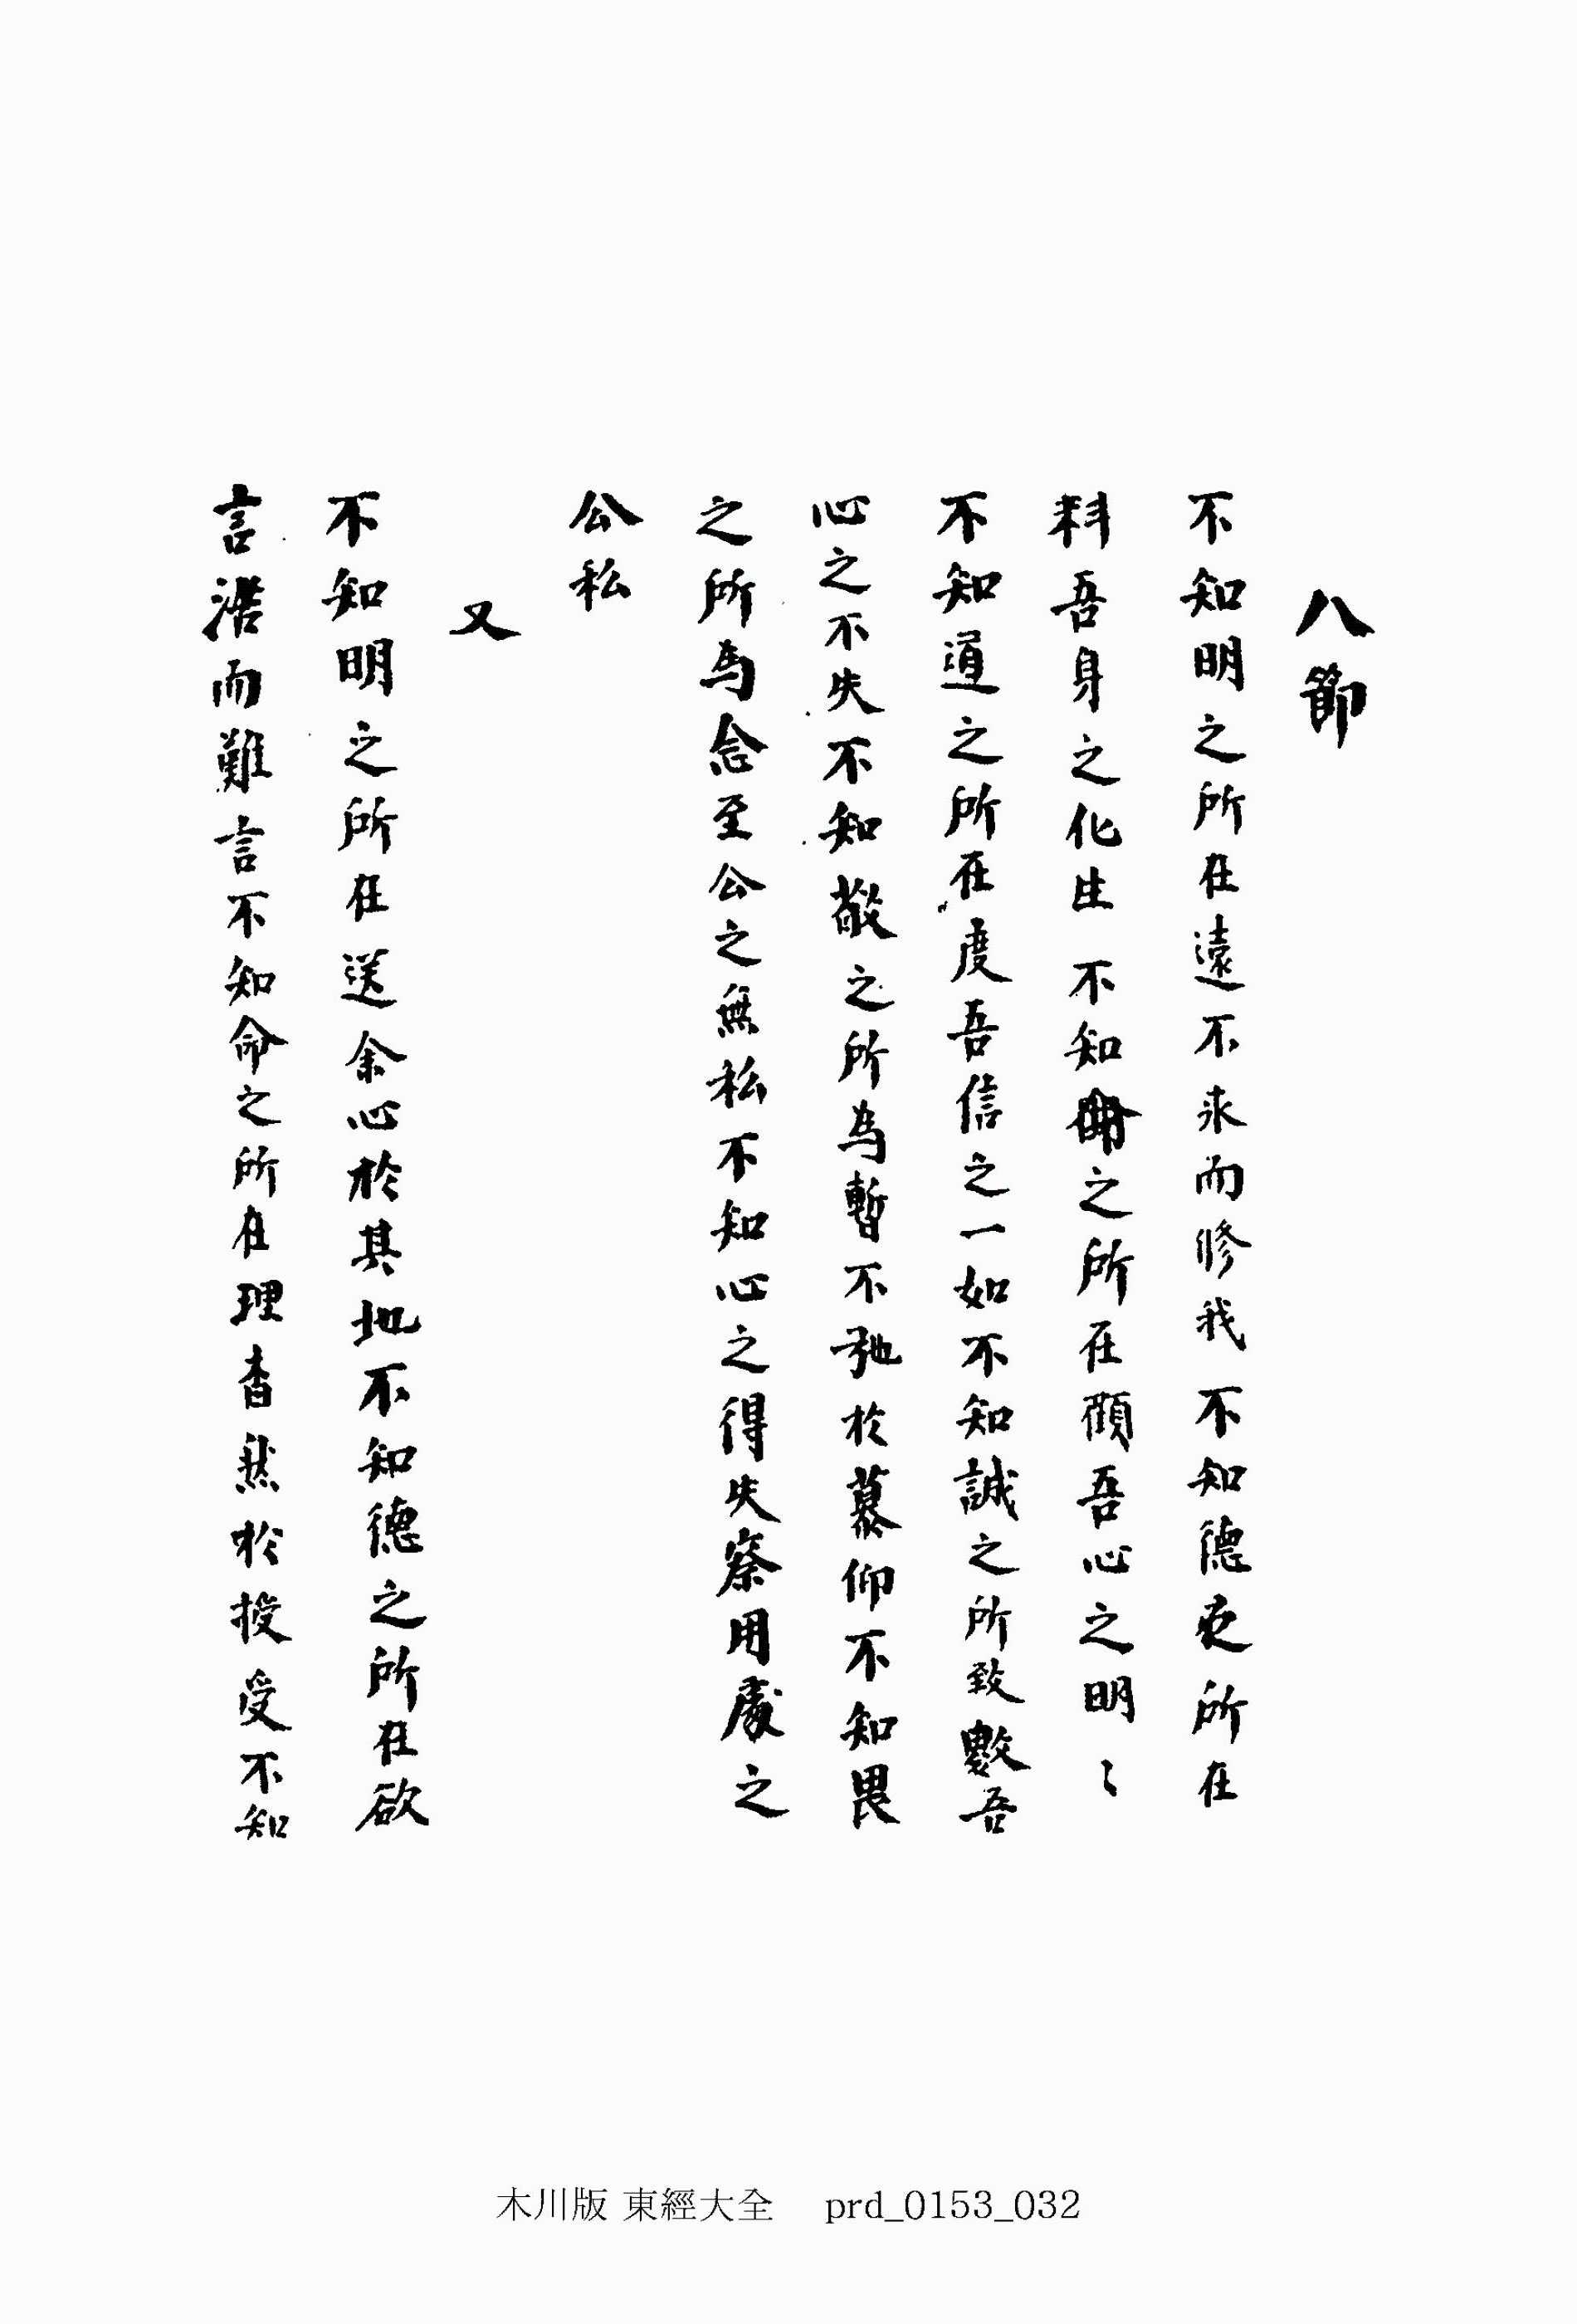 八節
不知明之所在遠不求而修我不知德之所在
料吾身之化生不知命之所在顧吾心之明〻
不知道之所在度吾信之一如不知誠之所致數吾
心之不失不知敬之所爲暫不弛於慕仰不知畏
之所爲念至公之無私不知心之得失察用處之
公私
又
不知明之所在送余心於其地不知德之所在欲
言浩而難言不知命之所在理杳然於授受不知
木川版 東經大全 prd_0153_032